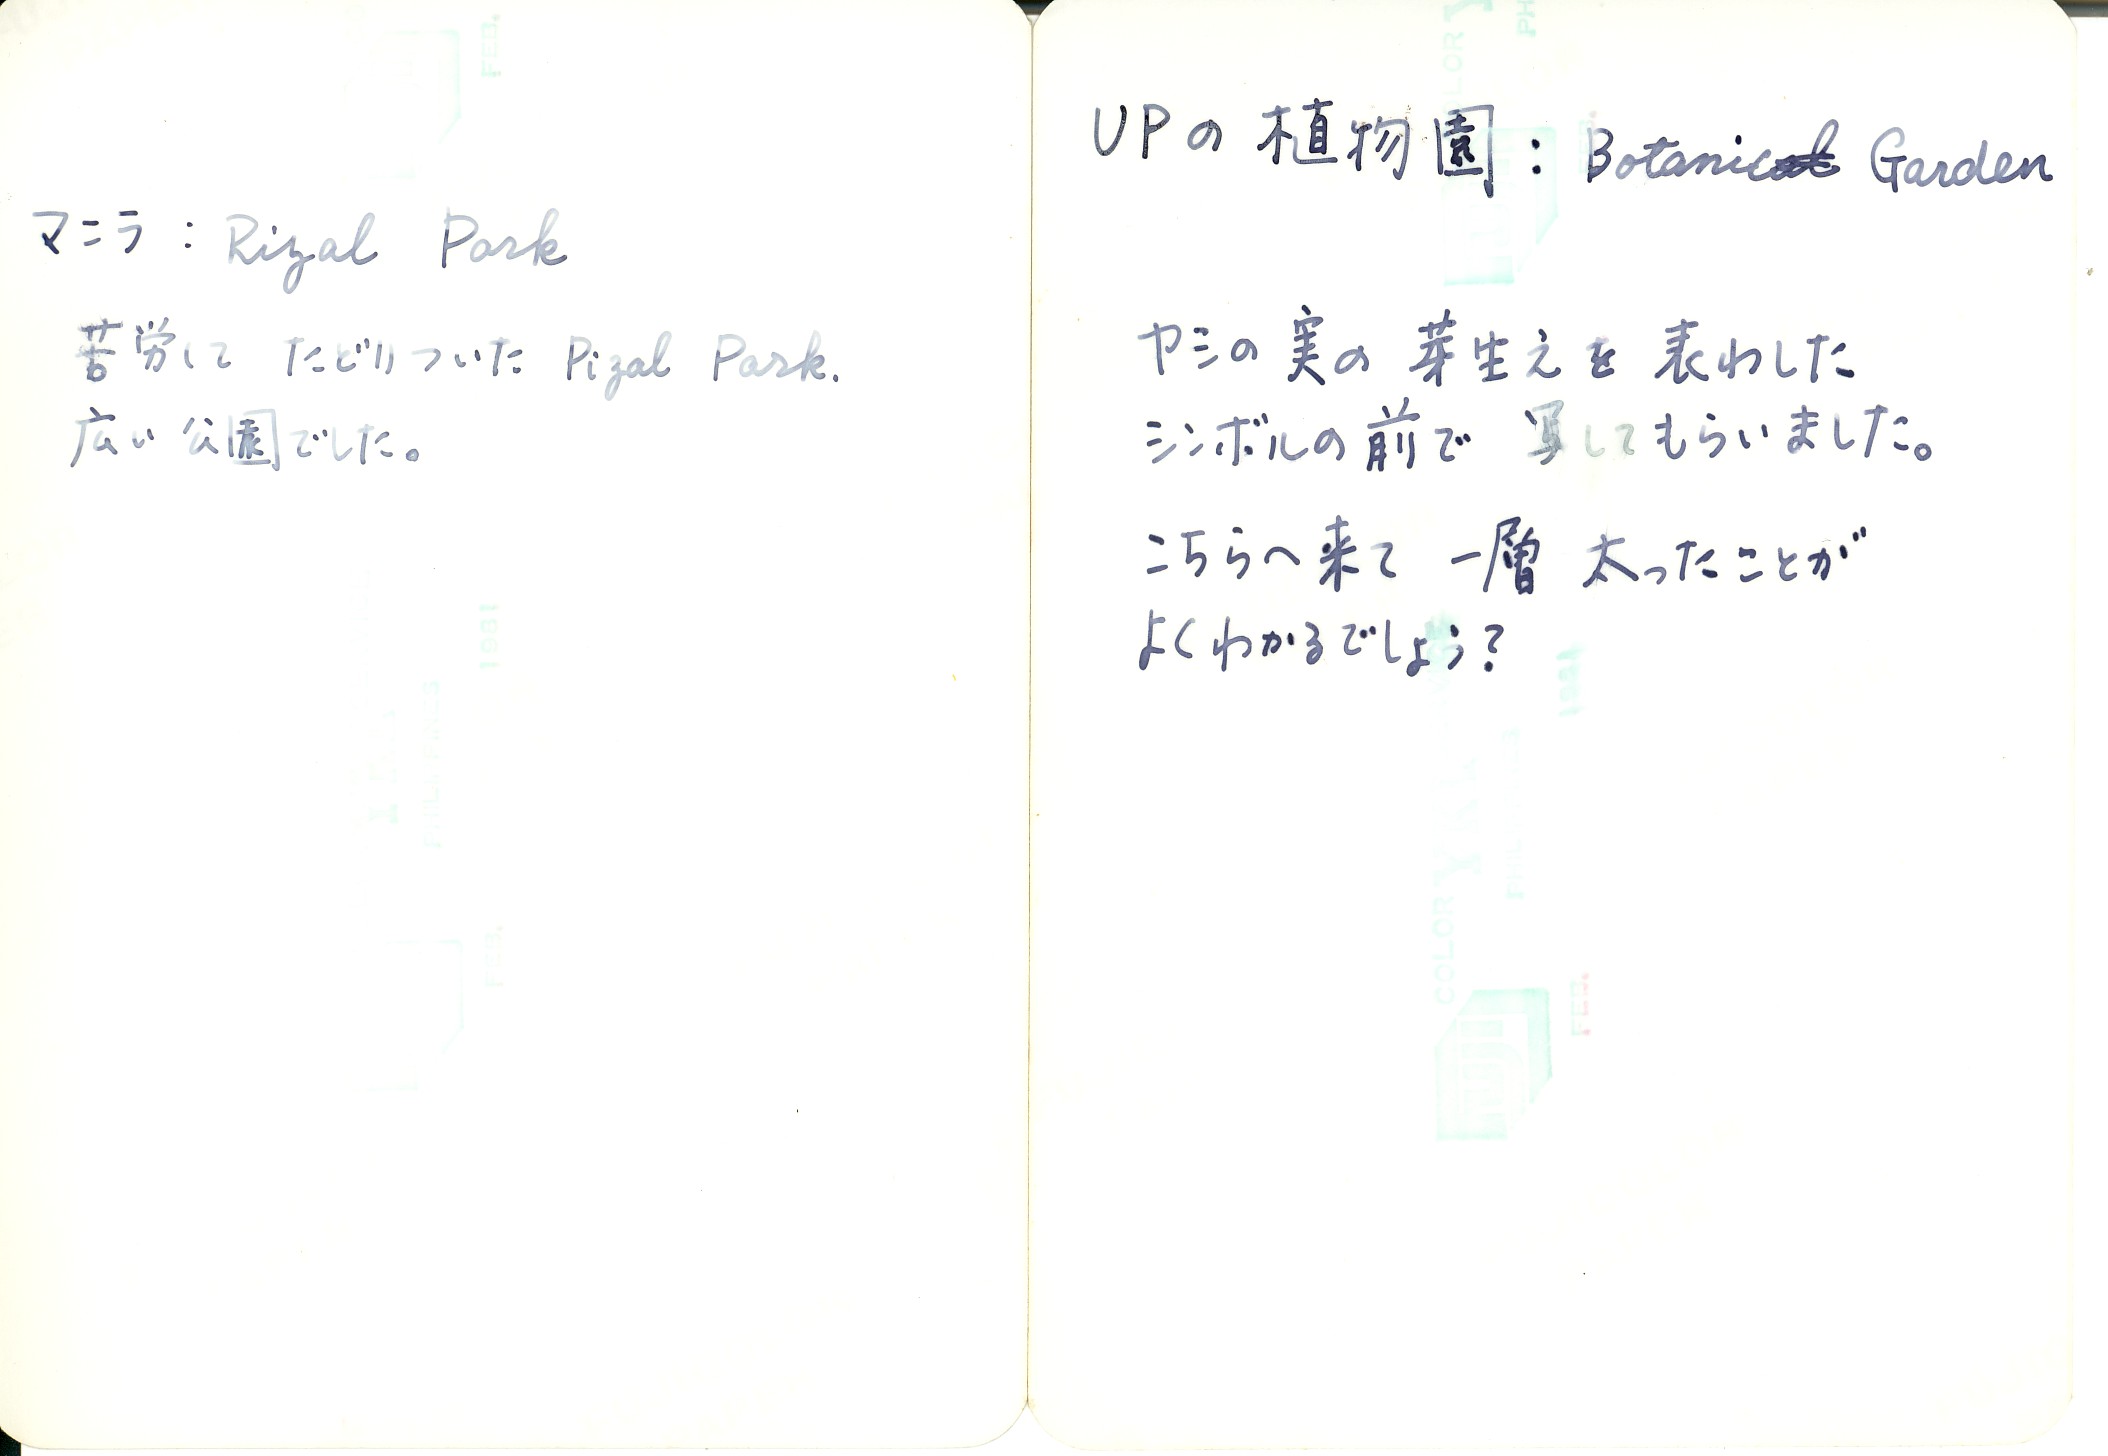 マニラ：Rizal Park
苦労して たどりついた Rizal Park.
広い公園でした。
UPの植物園：Botanical Garden
ヤシの実の芽生えを表わした
シンボルの前で 写してもらいました。
こちらへ来て 一層 太ったことが
よくわかるでしょう？
FEB.
1981
PHILIPPINES
FEB.
COLOR
PH
1981
COLOR
Fuji
FEB.